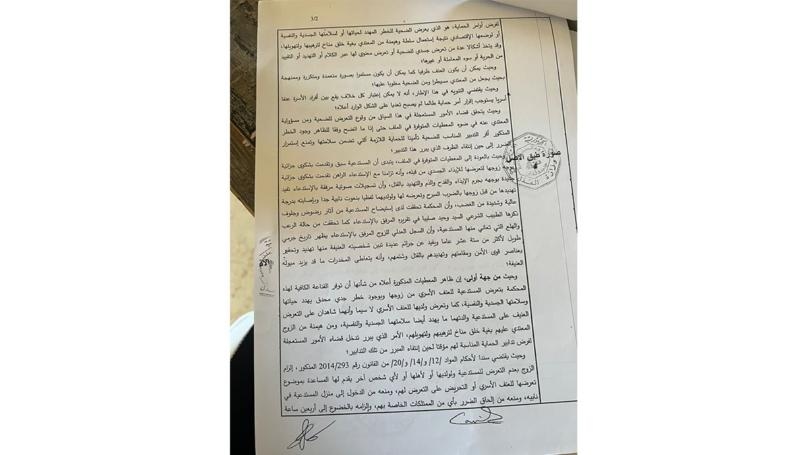 3/2
لفرض أوامر الحماية، هو الذي يعرض الضحية للخطر المهدد لحياتها أو لسلامتها الجسدية والنفسية
أو توضعها الإقتصادي نتيجة إستعمال سلطة وهيمنة من المعتدي بغية خلق مناخ لترهيبها وتهويلها،
وقد يتخذ أشكالا عدة من تعرض جسدي للضحية أو تعرض معنوي لها عبر الكلام أو التهديد أو التقييد
من الحرية أو سوء المعاملة أو غيرها؛
وحيث يمكن أن يكون العنف ظرفيا كما يمكن أن يكون مستمرا بصورة متعمدة ومتكررة وممنهجة
بحيث يجعل من المعتدي مسيطرا ومن الضحية مغلوبا عليها؛
وحيث يقتضي التنويه في هذا الإطار، أنه لا يمكن إعتبار كل خلاف يقع بين أفراد الأسرة عنفا
أسريا يستوجب إقرار أمر حماية طالما لم يصبح تعديا على الشكل الوارد أعلاه؛
وحيث يتحقق قضاء الأمور المستعجلة في هذا السياق من وقوع التعرض للضحية ومن مسؤولية
المعتدي عنه في ضوء المعطيات المتوفرة في الملف حتى إذا ما اتضح وفقا للظاهر وجود الخطر
المذكور أقر التدبير المناسب للضحية تأمينا للحماية اللازمة التي تضمن سلامتها وتمنع إستمرار
الضرر إلى حين إنتفاء الظرف الذي يبرر هذا التدبير؛
وحيث بالعودة إلى المعطيات المتوفرة في الملف، يتبدى أن المستدعية سبق وتقدمت بشكوى جزائية
بوجه زوجها لتعرضها للإيذاء الجسدي من قبله، وأنه تزامنا مع الإستدعاء الراهن تقدمت بشكوى جزائية
جديدة بوجهه بجرم الإيذاء والقدح والذم والتهديد بالقتل، وأن تسجيلات صوتية مرفقة بالإستدعاء تفيد
تهديدها من قبل زوجها بالضرب المبرح وتعرضه لها ولولديهما لفظيا بنعوت نابية جدا وإصابته بدرجة
عالية وشديدة من الغضب، وأن المحكمة تحققت لدى إستيضاح المستدعية من آثار رضوض وجلوف
ذكرها الطبيب الشرعي السيد وحيد صليبا في تقريره المرفق بالإستدعاء كما تحققت من حالة الرعب
والهلع التي تعاني منها المستدعية، وأن السجل العدلي للزوج المرفق بالإستدعاء يظهر تاريخ جرمي
طويل لأكثر من ستة عشر عاما ويفيد عن جرائم عديدة تبين شخصيته العنيفة منها تهديد وتحقير
بعناصر قوى الأمن ومقاومتهم وتهديدهم بالقتل وشتمهم، وأنه يتعاطى المخدرات ما قد يزيد ميوله
العنيفة؛
وحيث من جهة أولى، إن ظاهر المعطيات المذكورة أعلاه من شأنها أن توفر القناعة الكافية لهذه
المحكمة بتعرض المستدعية للعنف الأسري من زوجها وبوجود خطر جدي محدق يهدد حياتها
وسلامتها الجسدية والنفسية، كما وتعرض ولديها للعنف الأسري لا سيما وأنهما شاهدان على التعرض
العنيف على المستدعية والدتهما ما يهدد أيضا سلامتهما الجسدية والنفسية، ومن هيمنة من الزوج
المعتدي عليهم بغية خلق مناخ لترهيبهم وتهويلهم، الأمر الذي يبرر تدخل قضاء الأمور المستعجلة
لفرض تدابير الحماية المناسبة لهم مؤقتا لحين إنتفاء المبرر من تلك التدابير؛
وحيث يقتضي سندا لأحكام المواد /12/ و/14/ و/20/ من القانون رقم 2014/293 المذكور، إلزام
الزوج بعدم التعرض للمستدعية ولولديها أو لأهلها أو لأي شخص آخر يقدم لها المساعدة بموضوع
تعرضها للعنف الأسري أو التحريض على التعرض لهم، ومنعه من الدخول إلى منزل المستدعية في
نابيه، ومنعه من إلحاق الضرر بأي من الممتلكات الخاصة بهم، وإلزامه بالخضوع إلى أربعين ساعة
صورة طبق الأصل